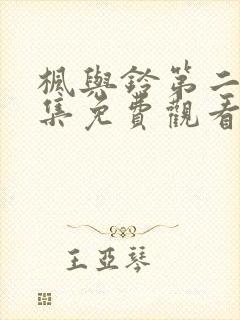 楓與鈴第二
集免費觀看
王亞琴